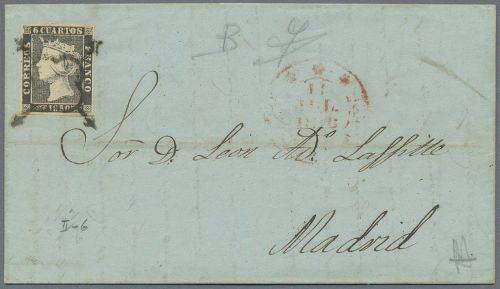 6 CUARTOS
CORREOS
FRANCO
1850
B
Sor. D. Leon Ado. Laffitte
Madrid
II-6